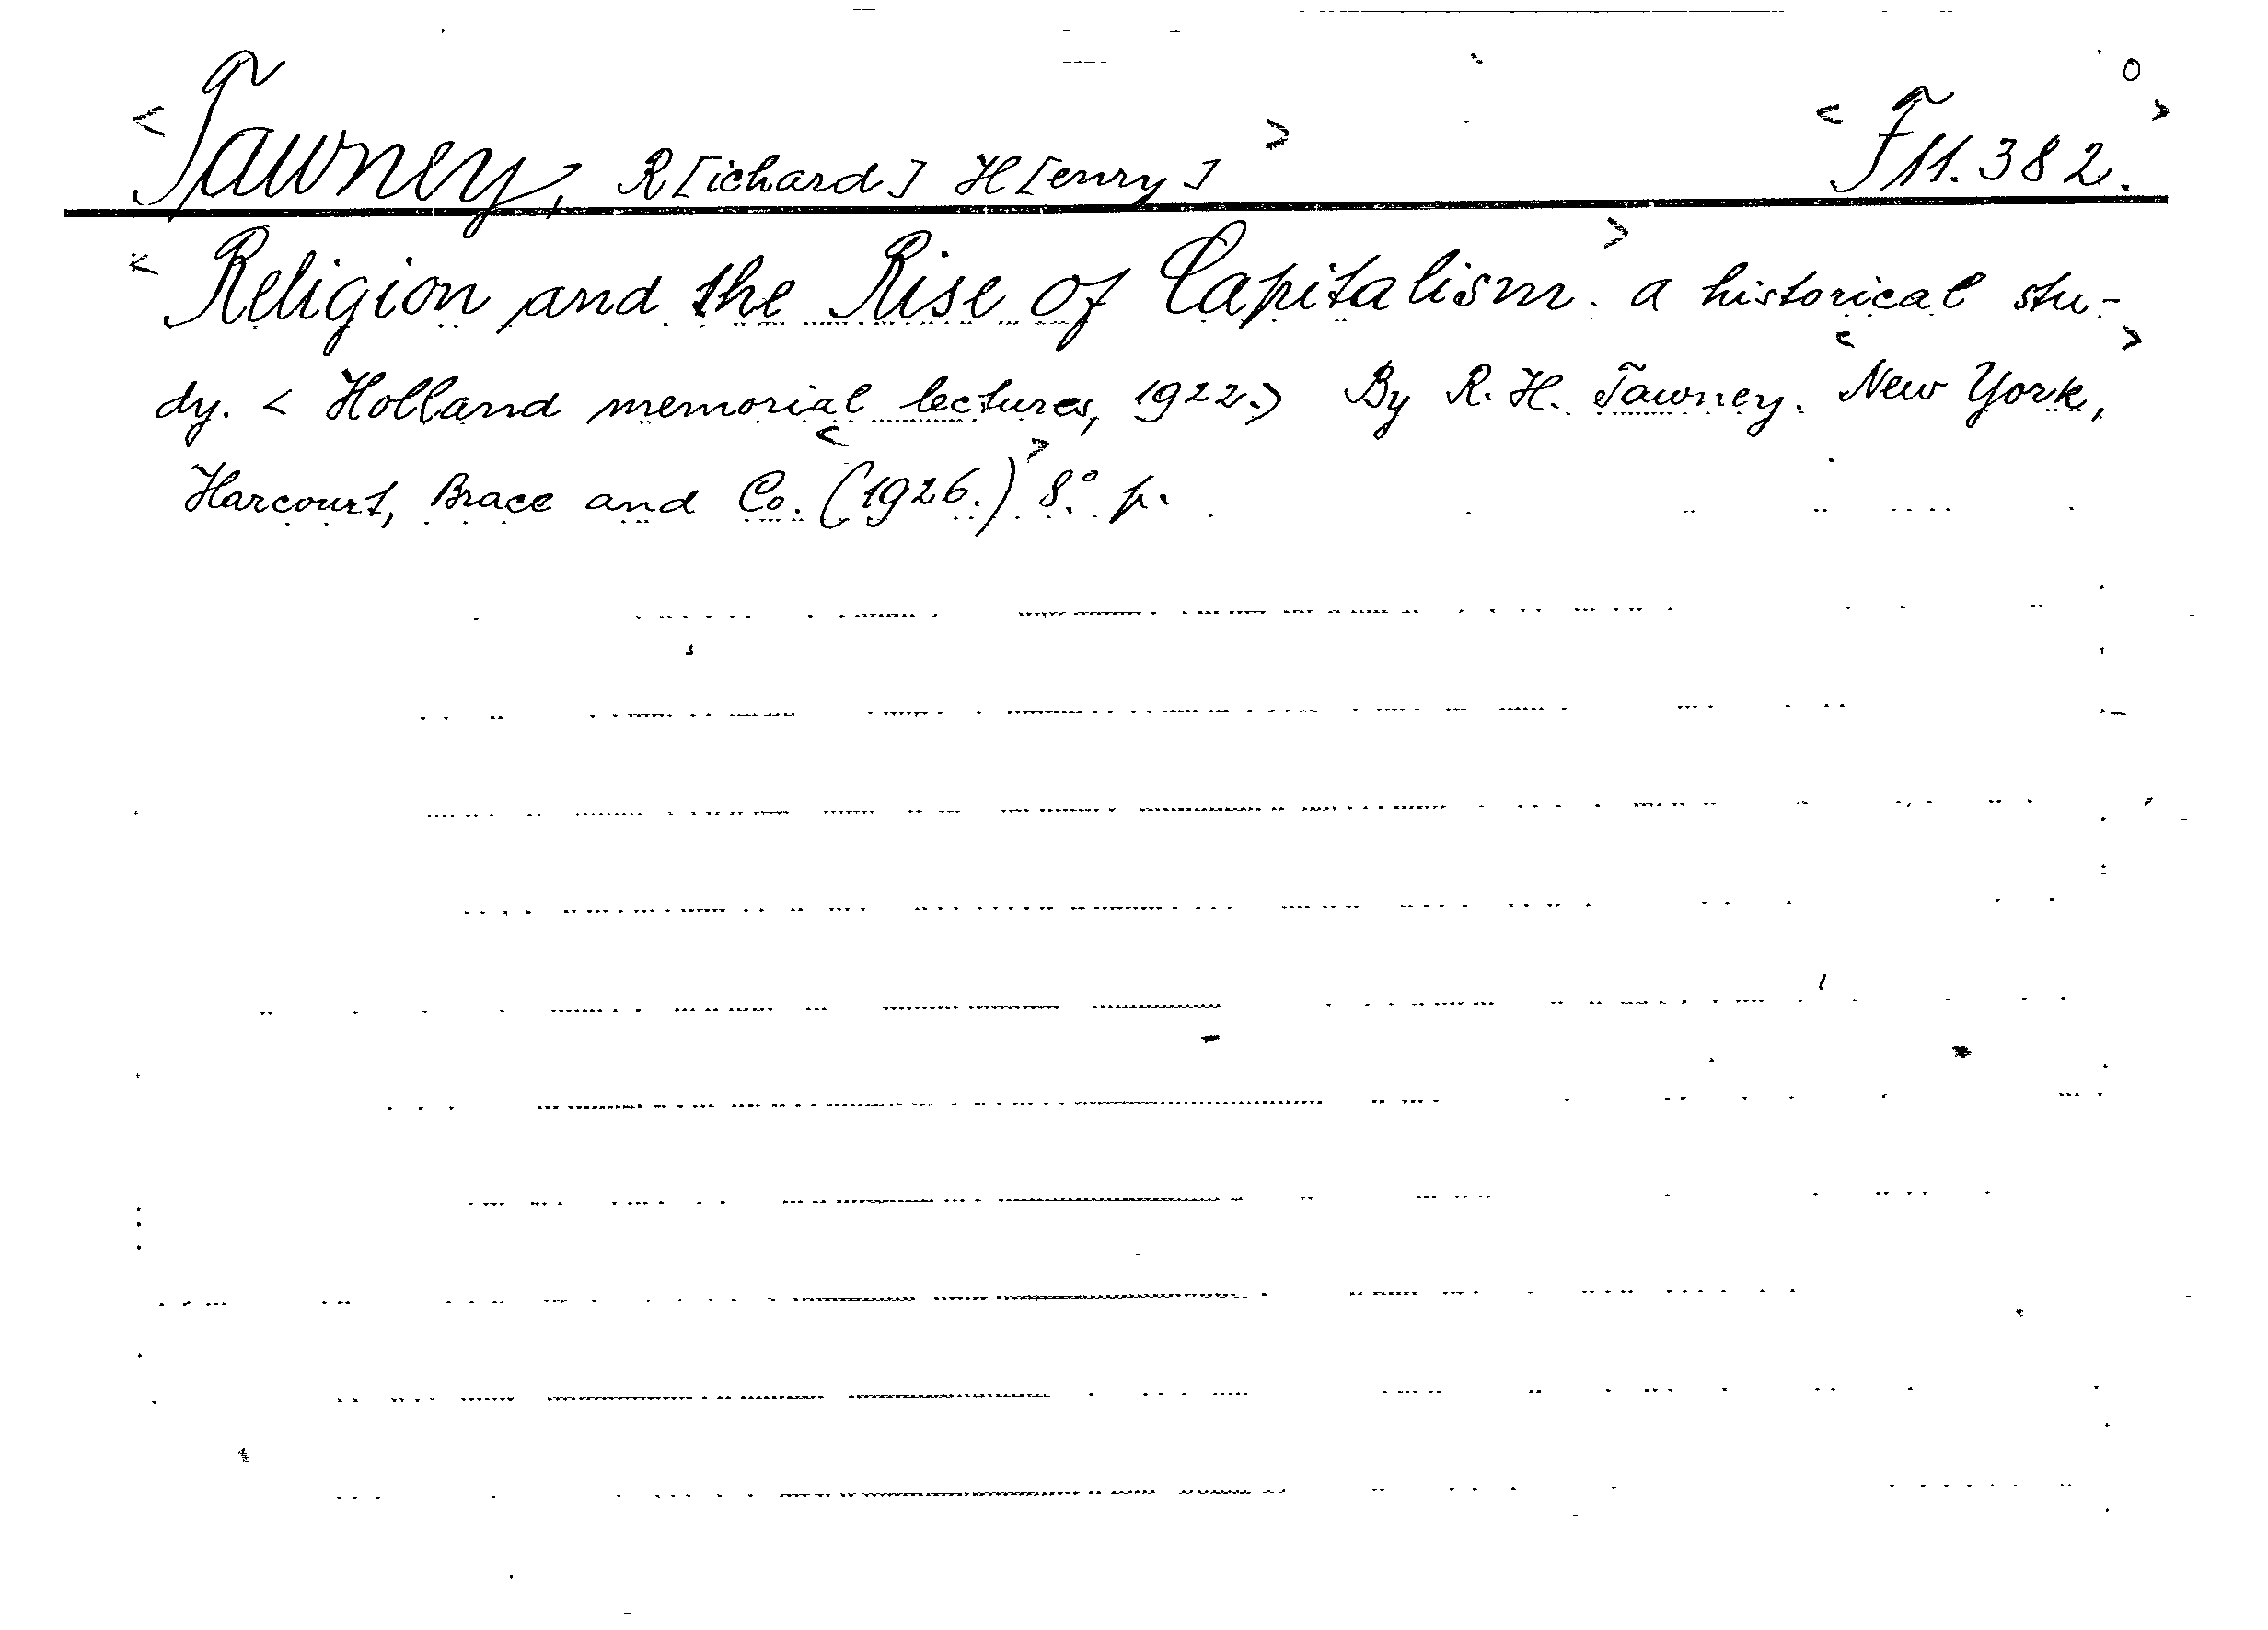 <Tawney, R[ichard] H[enry]> <F11.382.>
<Religion and the Rise of Capitalism.> a historical stu-
dy. <Holland memorial lectures, 1922.> By R. H. Tawney. <New York,>
Harcourt, Brace and Co. <(1926.)> 8.° p.